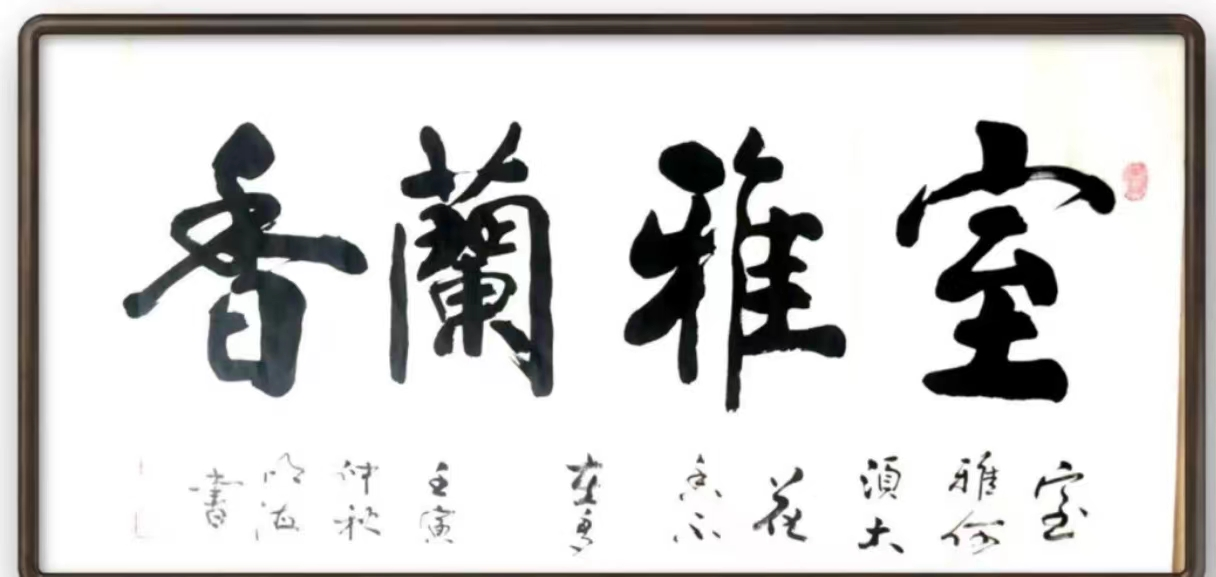 室雅蘭香
室
雅何
須大
花
香不
在多
壬寅
仲秋
明海
書